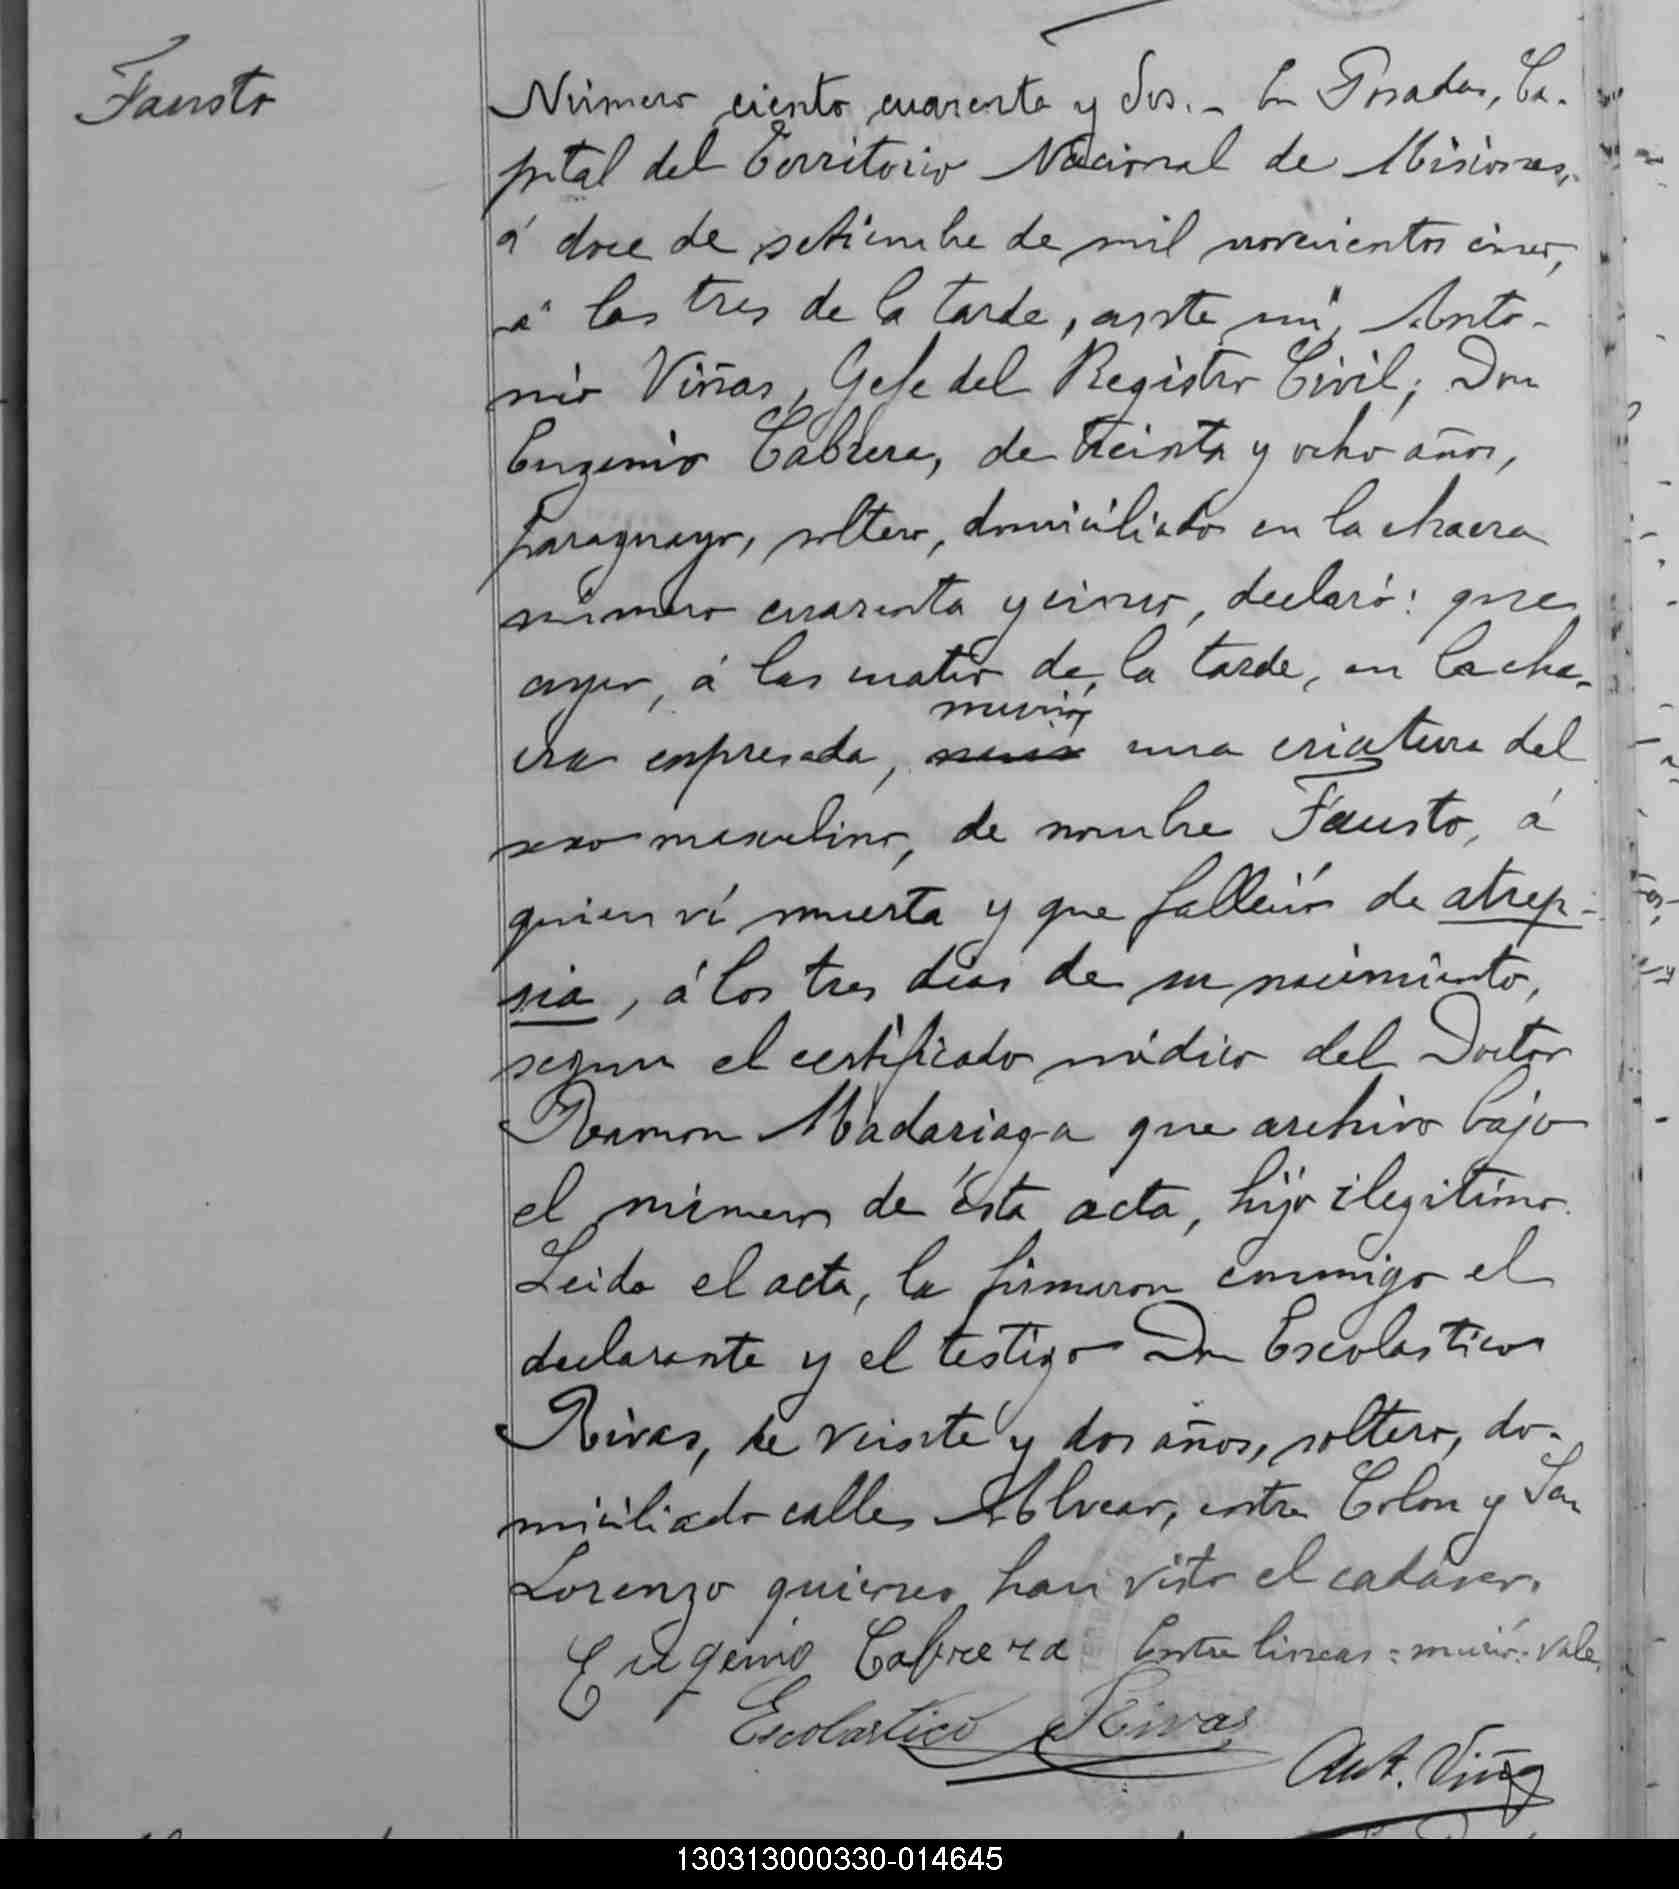 Fausto
Número ciento cuarenta y dos.- En Posadas, Ca-
pital del Territorio Nacional de Misiones,
á doce de setiembre de mil novecientos cinco,
á las tres de la tarde, ante mí, Anto-
nio Viñas, Gefe del Registro Civil; Don
Eugenio Cabrera, de treinta y ocho años,
paraguayo, soltero, domiciliado en la chacra
número cuarenta y cinco, declaró: que
ayer, á las cuatro de la tarde, en la cha-
murió
cra expresada, una criatura del
sexo masculino, de nombre Fausto, á
quien ví muerta y que falleció de atrep-
sia, á los tres dias de su nacimiento,
segun el certificado médico del Doctor
Ramon Madariaga que archivo bajo
el número de ésta acta, hijo ilegitimo.
Leida el acta, la firmaron conmigo el
declarante y el testigo Don Escolastico
Rivas, de veinte y dos años, soltero, do-
miciliado calles Alvear, entre Colon y San
Lorenzo quienes han visto el cadáver.
Eugenio Cabrera Entre lineas: murió: vale.
Escolastico Rivas
Ant. Viñas
130313000330-014645